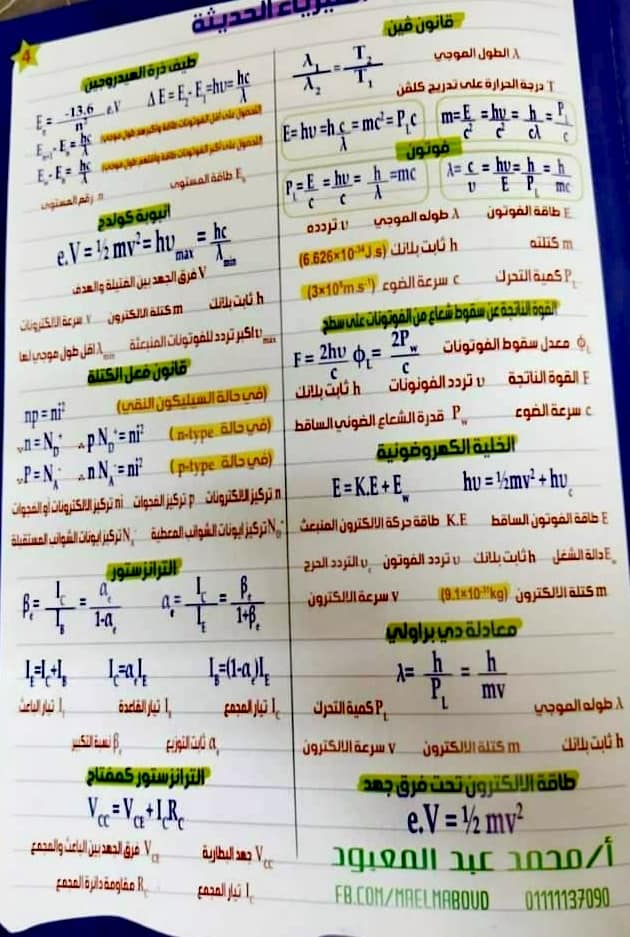 الفيزياء الحديثة
4
قانون فين
λ₁/λ₂ = T₂/T₁
λ الطول الموجي
T درجة الحرارة على تدريج كلفن
E= hυ =h c/λ = mc² = P_L c
m= E/c² = hυ/c² = h/cλ = P_L/c
فوتون
P_L= E/c = hυ/c = h/λ =mc
λ= c/υ = hυ/E = h/P_L = h/mc
E طاقة الفوتون λ طوله الموجي υ تردده
m كتلته h ثابت بلانك (6.626×10⁻³⁴J.s)
P_L كمية التحرك c سرعة الضوء (3×10⁸m.s⁻¹)
القوة الناتجة عن سقوط شعاع من الفوتونات على سطح
F= 2hυ/c ϕ_L= 2P_w/c
ϕ_L معدل سقوط الفوتونات
F القوة الناتجة υ تردد الفوتونات h ثابت بلانك
c سرعة الضوء P_w قدرة الشعاع الضوئي الساقط
الخلية الكهروضوئية
E=K.E+E_w hυ=½mv²+hυ_c
E طاقة الفوتون الساقط K.E طاقة حركة الالكترون المنبعث
E_w دالة الشغل h ثابت بلانك υ تردد الفوتون υ_c التردد الحرج
m كتلة الالكترون (9.1×10⁻³¹kg) v سرعة الالكترون
معادلة دي براولي
λ= h/P_L = h/mv
λ طوله الموجي P_L كمية التحرك
h ثابت بلانك m كتلة الالكترون v سرعة الالكترون
طاقة الالكترون تحت فرق جهد
e.V = ½ mv²
أ/محمد عبد المعبود
FB.COM/MAELMABOUD 01111137090
طيف ذرة الهيدروجين
E_n= -13.6/n² e.V ΔE=E₂-E₁=hυ= hc/λ
E_n+1-E_n= hc/λ للحصول على أقل الفوتونات طاقة وأكبر طول موجي
E_∞-E_n= hc/λ للحصول على أكبر الفوتونات طاقة وأقصر طول موجي
E_n طاقة المستوى n رقم المستوى
انبوبة كولدج
e.V = ½ mv²= hυ_max = hc/λ_min
V فرق الجهد بين الفتيلة والهدف
h ثابت بلانك m كتلة الالكترون v سرعة الالكترونات
υ_max اكبر تردد للفوتونات المنبعثة λ_min اقل طول موجي لها
قانون فعل الكتلة
np = ni² (في حالة السيليكون النقي)
∵n = N_D⁺ ∴pN_D⁺= ni² (في حالة n-type)
∵P = N_A⁻ ∴nN_A⁻= ni² (في حالة p-type)
n تركيز الالكترونات p تركيز الفجوات ni تركيز الالكترونات أو الفجوات
N_D⁺ تركيز ايونات الشوائب المعطية N_A⁻ تركيز ايونات الشوائب المستقبلة
الترانزستور
β_e= I_C/I_B = α_e/1-α_e α_e= I_C/I_E = β_e/1+β_e
I_E=I_C+I_B I_C=α_e I_E I_B=(1-α_e)I_E
I_C تيار المجمع I_B تيار القاعدة I_E تيار الباعث
α_e ثابت التوزيع β_e نسبة التكبير
الترانزستور كمفتاح
V_CC = V_CE + I_C R_C
V_CC جهد البطارية V_CE فرق الجهد بين الباعث والمجمع
I_C تيار المجمع R_C مقاومة دائرة المجمع